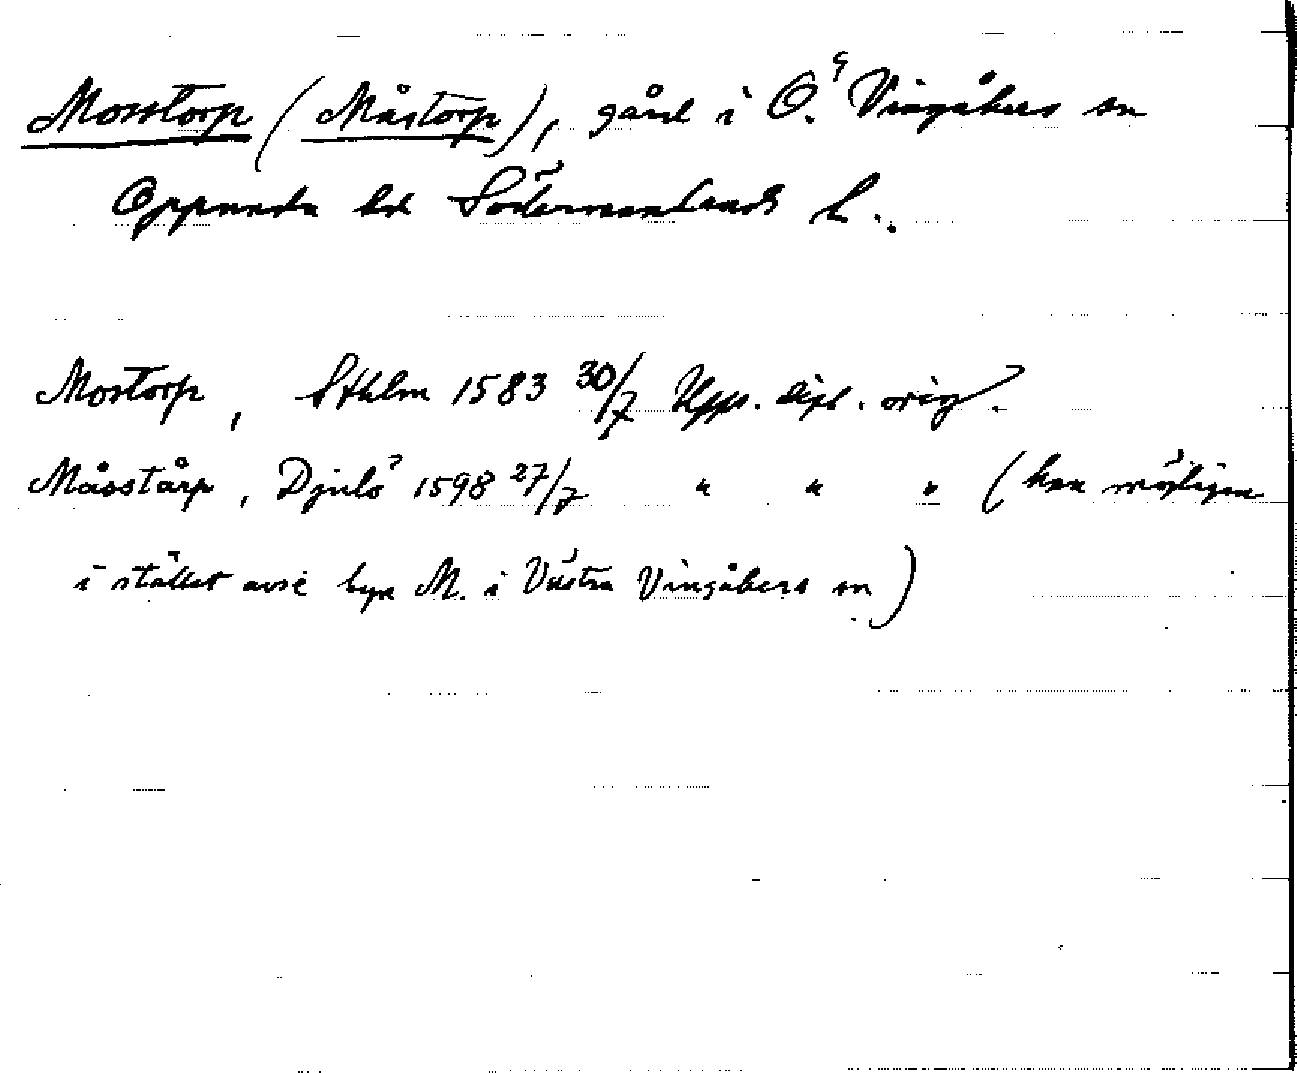 Mosstorp (Måstorp), gård i Ö. Vingåkers sn
Oppunda hd Södermanlands l.
Mostorp, Sthlm 1583 30/7 Upps. dipl. orig.
Måsstårp, Djulö 1598 27/7 " " " (kan möjligen
i stället avse byn M. i Västra Vingåkers sn)